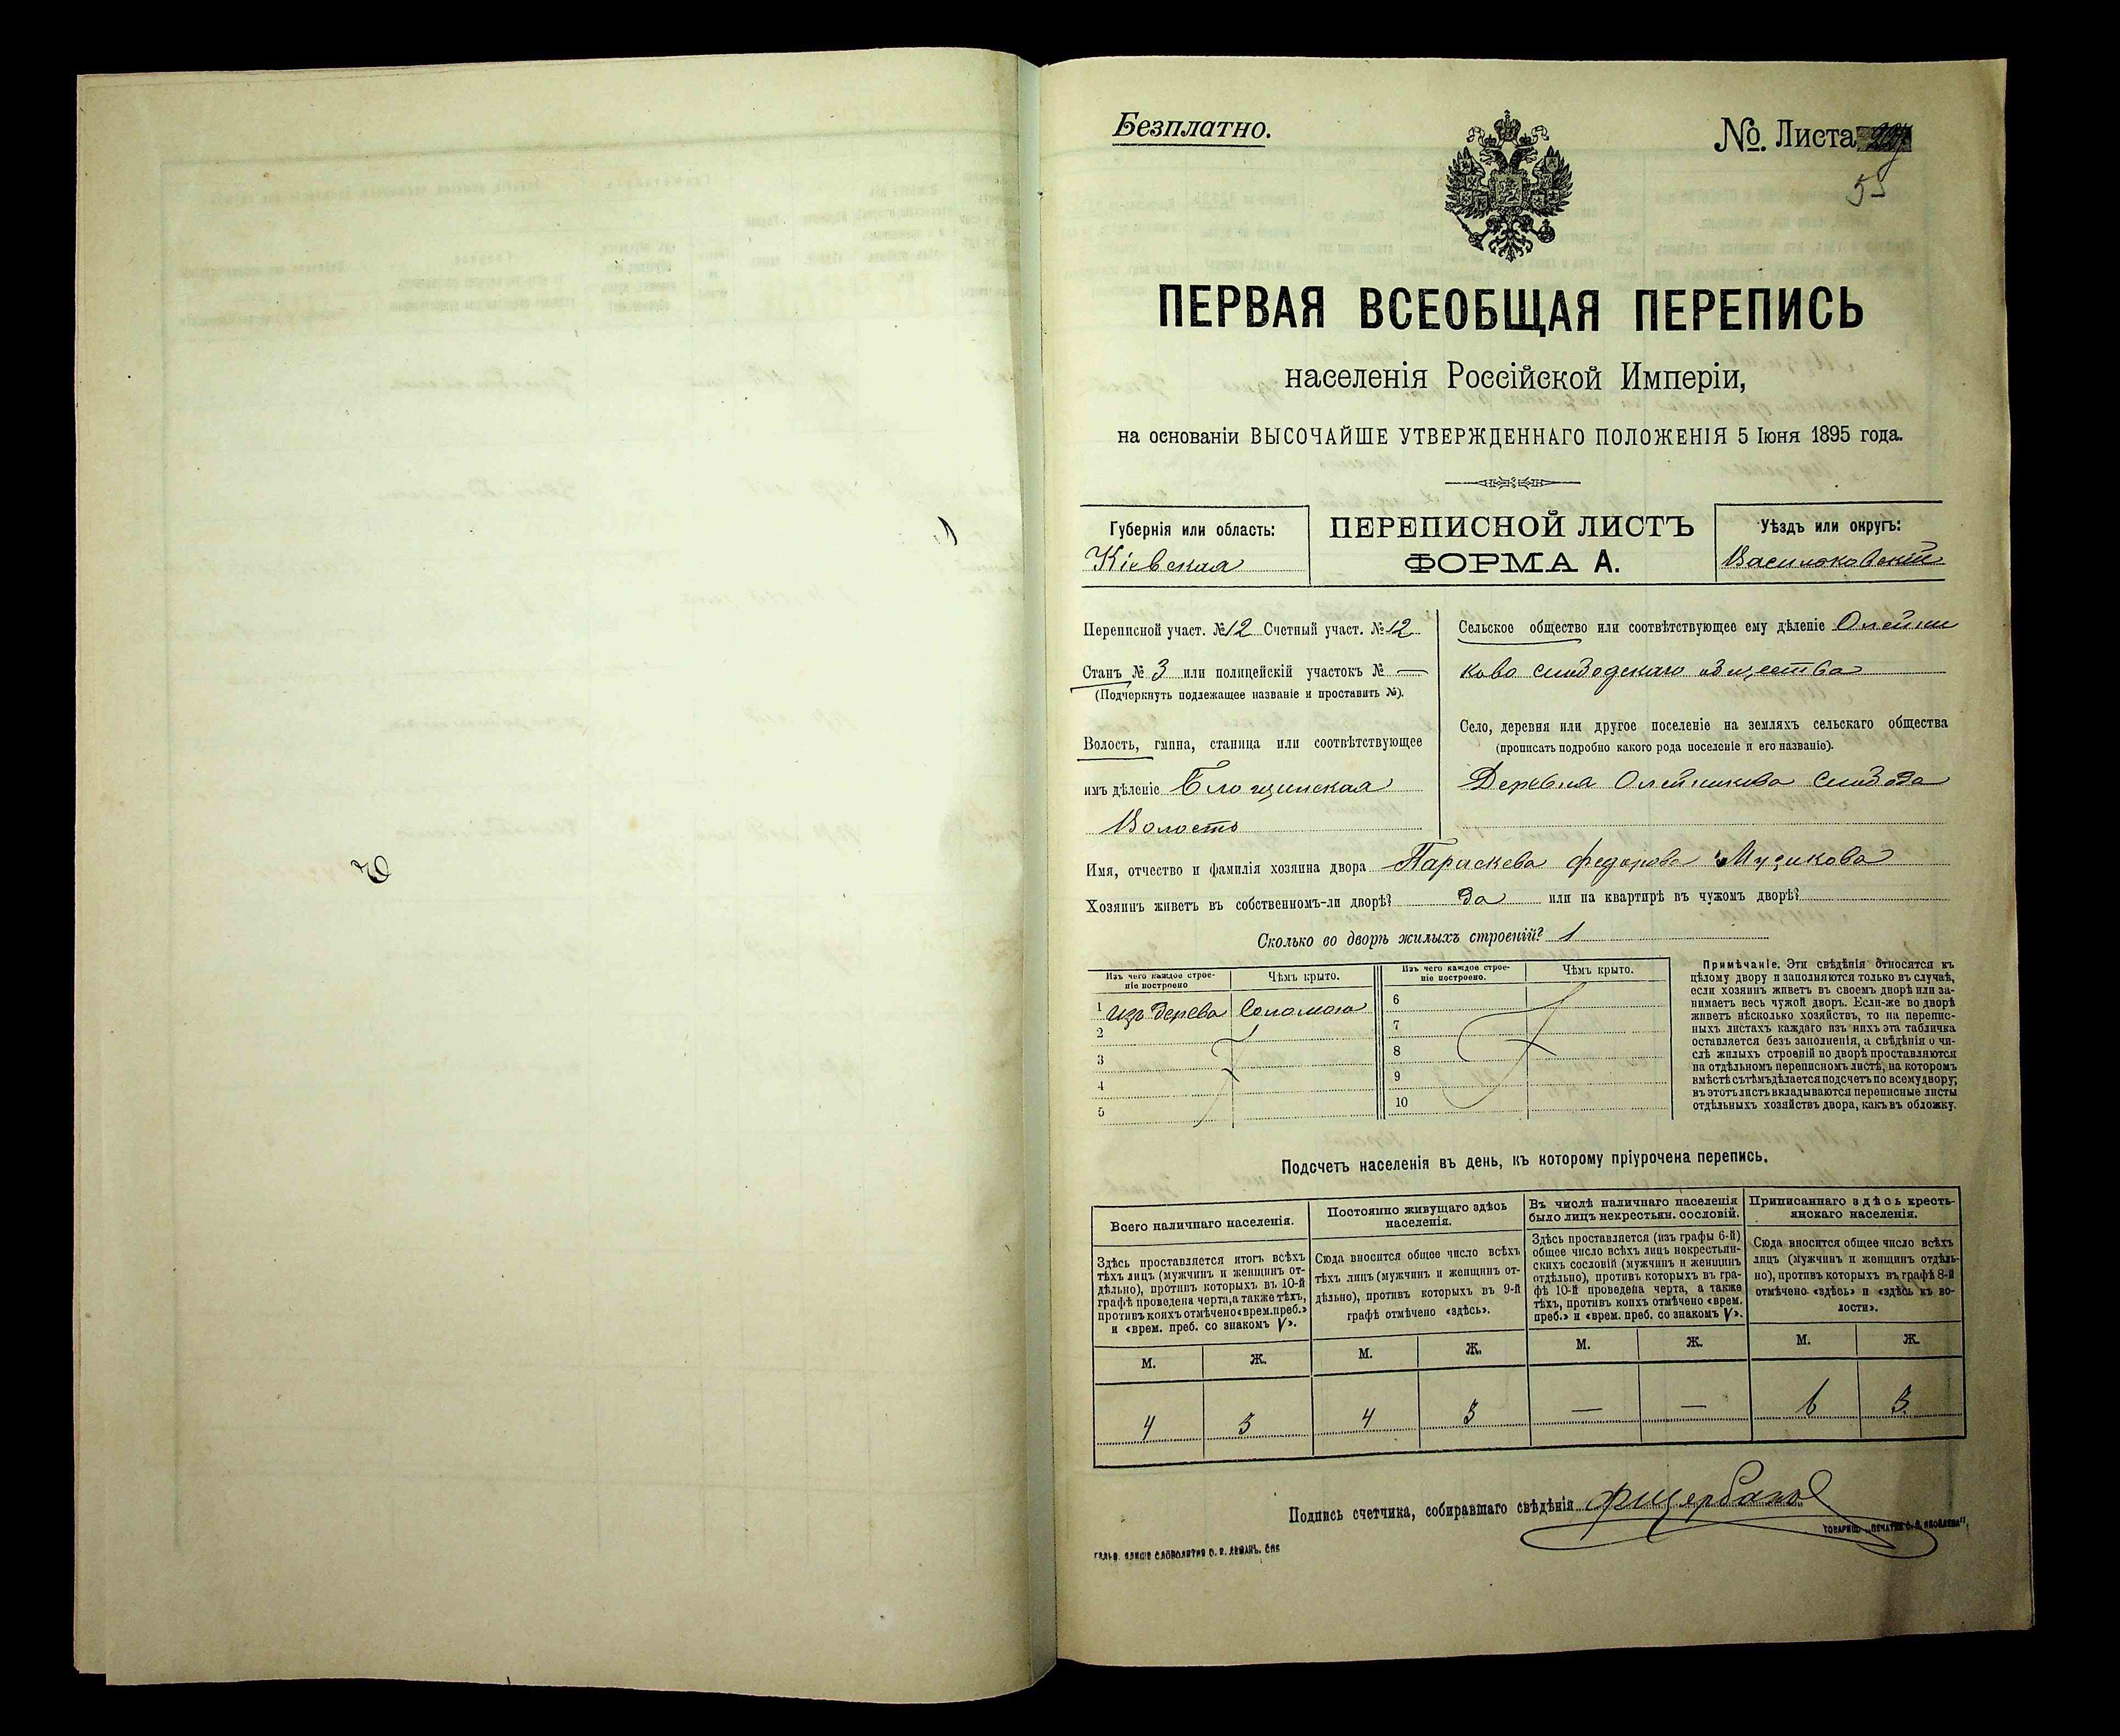 Безплатно.
№. Листа
55
ПЕРВАЯ ВСЕОБЩАЯ ПЕРЕПИСЬ
населенія Россійской Имперіи,
на основаніи ВЫСОЧАЙШЕ УТВЕРЖДЕННАГО ПОЛОЖЕНІЯ 5 Іюня 1895 года.
Губернія или область:
Кіевская
ПЕРЕПИСНОЙ ЛИСТЪ
ФОРМА А.
Уѣздъ или округъ:
Васильковскій
Переписной участ. № 12 Счетный участ. № 12
Станъ № 3 или полицейскій участокъ № —
(Подчеркнуть подлежащее названіе и проставить №).
Волость, гмина, станица или соотвѣтствующее
имъ дѣленіе Блощинская
Волость
Сельское общество или соотвѣтствующее ему дѣленіе Олейни
кова Слободскаго общества
Село, деревня или другое поселеніе на земляхъ сельскаго общества
(прописать подробно какого рода поселеніе и его названіе).
Деревня Олейникова Слобода
Имя, отчество и фамилія хозяина двора Параскева Федорова Музикова
Хозяинъ живетъ въ собственномъ-ли дворѣ? да или на квартирѣ въ чужомъ дворѣ?
Сколько во дворѣ жилыхъ строеній? 1
Изъ чего каждое строе-
ніе построено
Чѣмъ крыто.
Изъ чего каждое строе-
ніе построено.
Чѣмъ крыто.
1 изъ дерева Соломою
2
3
4
5
6
7
8
9
10
Примѣчаніе. Эти свѣдѣнія относятся къ
цѣлому двору и заполняются только въ случаѣ,
если хозяинъ живетъ въ своемъ дворѣ или за-
нимаетъ весь чужой дворъ. Если-же во дворѣ
живетъ нѣсколько хозяйствъ, то на перепис-
ныхъ листахъ каждаго изъ нихъ эта табличка
оставляется безъ заполненія, а свѣдѣнія о чи-
слѣ жилыхъ строеній во дворѣ проставляются
на отдѣльномъ переписномъ листѣ, на которомъ
вмѣстѣ съ тѣмъ дѣлается подсчетъ по всему двору;
въ этотъ листъ вкладываются переписные листы
отдѣльныхъ хозяйствъ двора, какъ въ обложку.
Подсчетъ населенія въ день, къ которому пріурочена перепись.
Всего наличнаго населенія.
Постоянно живущаго здѣсь
населенія.
Въ числѣ наличнаго населенія
было лицъ некрестьян. сословій.
Приписаннаго здѣсь кресть-
янскаго населенія.
Здѣсь проставляется итогъ всѣхъ
тѣхъ лицъ (мужчинъ и женщинъ от-
дѣльно), противъ которыхъ въ 10-й
графѣ проведена черта, а также тѣхъ,
противъ коихъ отмѣчено «врем. преб.»
и «врем. преб. со знакомъ V».
Сюда вносится общее число всѣхъ
тѣхъ лицъ (мужчинъ и женщинъ от-
дѣльно), противъ которыхъ въ 9-й
графѣ отмѣчено «здѣсь».
Здѣсь проставляется (изъ графы 6-й)
общее число всѣхъ лицъ некрестьян-
скихъ сословій (мужчинъ и женщинъ
отдѣльно), противъ которыхъ въ гра-
фѣ 10-й проведена черта, а также
тѣхъ, противъ коихъ отмѣчено «врем.
преб.» и «врем. преб. со знакомъ V».
Сюда вносится общее число всѣхъ
лицъ (мужчинъ и женщинъ отдѣль-
но), противъ которыхъ въ графѣ 8-й
отмѣчено «здѣсь» и «здѣсь въ во-
лости».
М. Ж. М. Ж. М. Ж. М. Ж.
4 3 4 3 — — 6 3
Подпись счетчика, собиравшаго свѣдѣнія